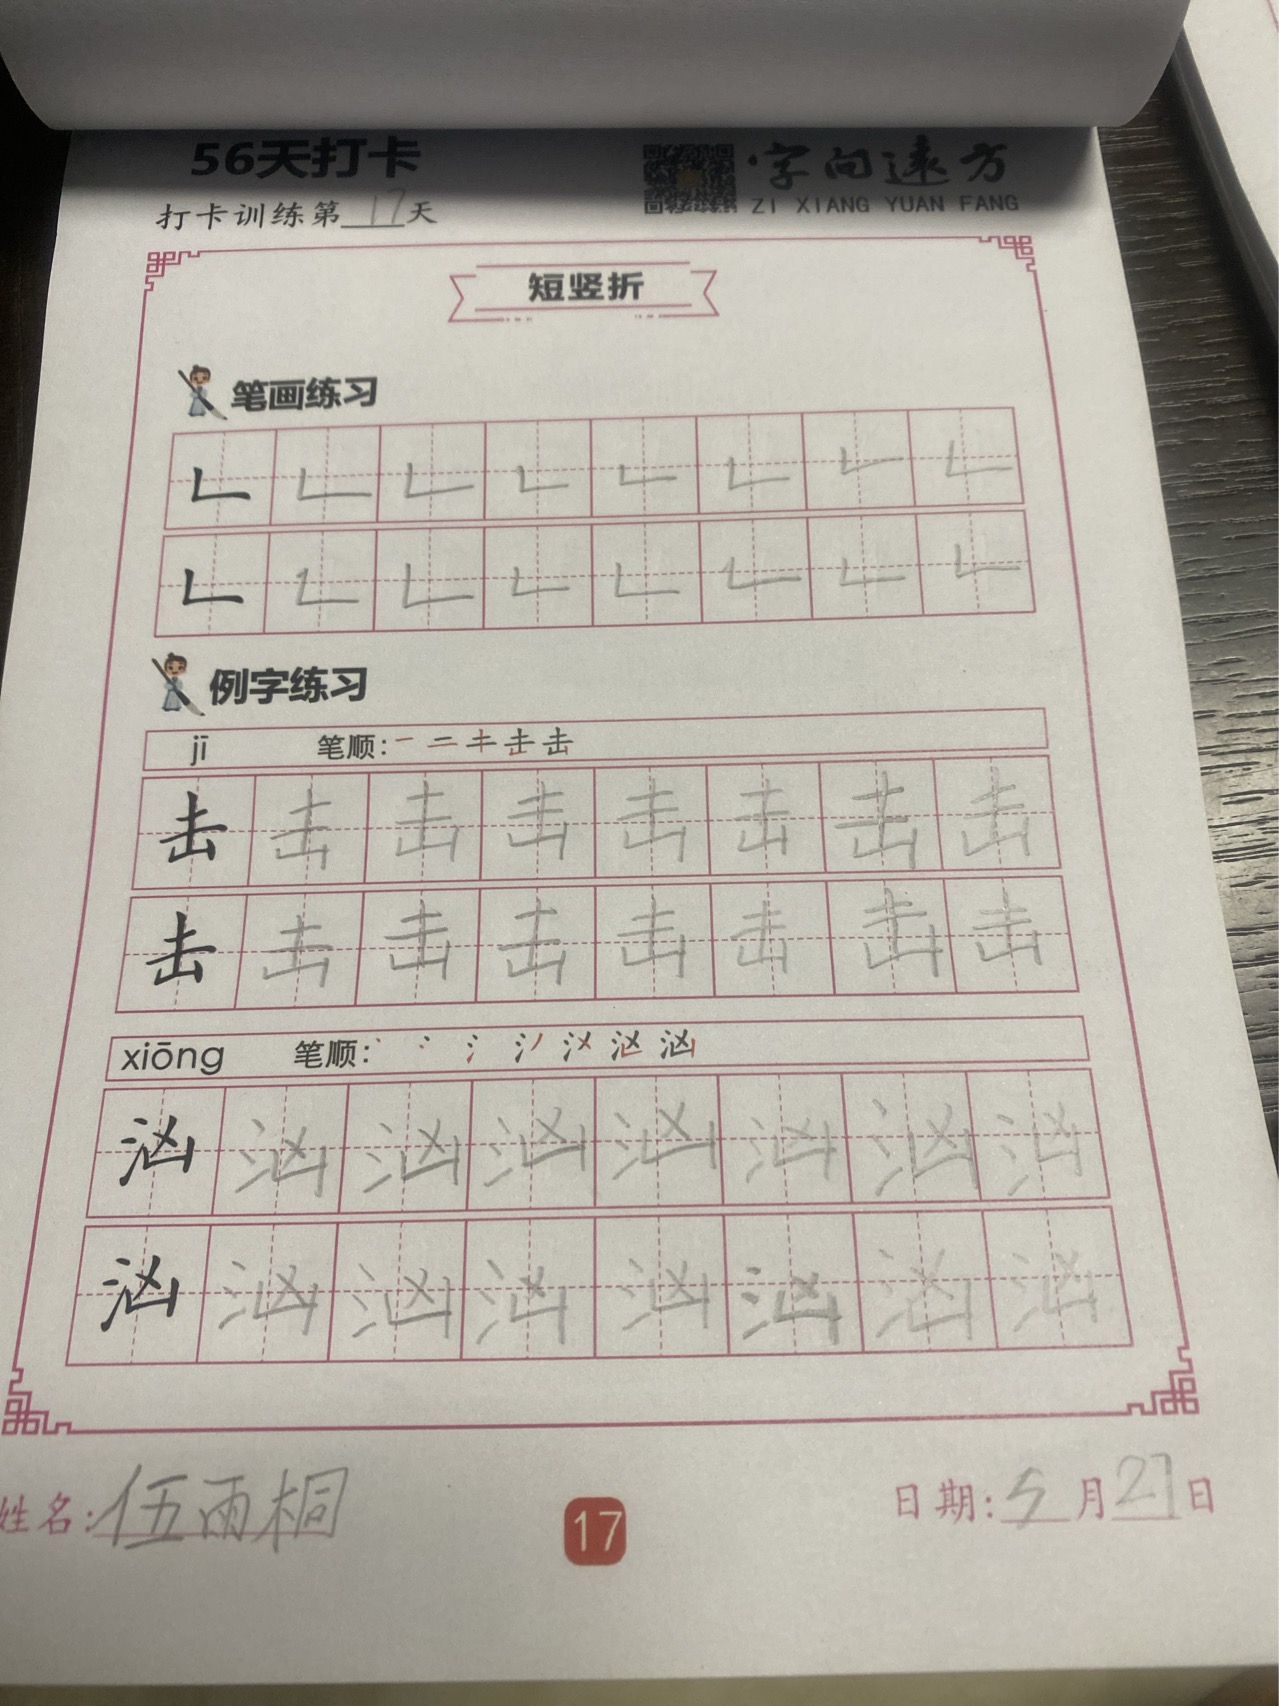 56天打卡
字向远方
打卡训练第17天
ZI XIANG YUAN FANG
短竖折
笔画练习
𠃊 𠃊 𠃊 𠃊 𠃊 𠃊 𠃊 𠃊
𠃊 𠃊 𠃊 𠃊 𠃊 𠃊 𠃊 𠃊
例字练习
jī 笔顺: 击
击 击 击 击 击 击 击 击
击 击 击 击 击 击 击 击
xiōng 笔顺: 汹
汹 汹 汹 汹 汹 汹 汹 汹
汹 汹 汹 汹 汹 汹 汹 汹
姓名: 伍雨桐
17
日期: 5月27日